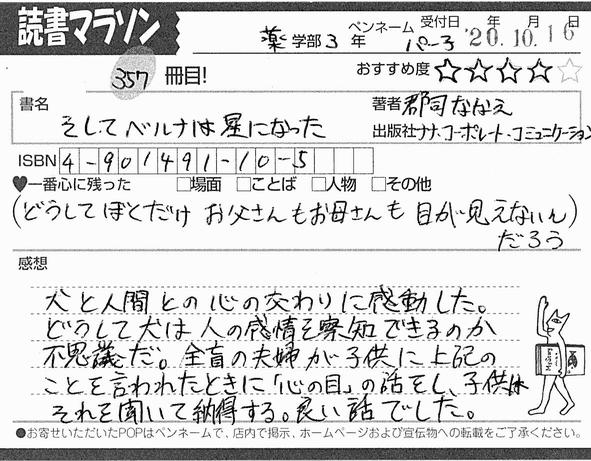 読書マラソン
薬 学部 3 年 ペンネーム パーチ 受付日 '20.10.16 年 月 日
357 冊目! おすすめ度 ☆☆☆☆☆
書名 そしてベルナは星になった
著者 郡司ななえ
出版社 ナナ・コーポレート・コミュニケーション
ISBN 4-901491-10-5
♥一番心に残った □場面 □ことば □人物 □その他
(どうしてぼくだけ お父さんもお母さんも 目が見えないん)
だろう
感想
犬と人間との心の交わりに感動した。
どうして犬は人の感情を察知できるのか
不思議だ。全盲の夫婦が子供に上記の
ことを言われたときに「心の目」の話をし、子供は
それを聞いて納得する。良い話でした。
●お寄せいただいたPOPはペンネームで、店内で掲示、ホームページおよび宣伝物への転載をご了承ください。